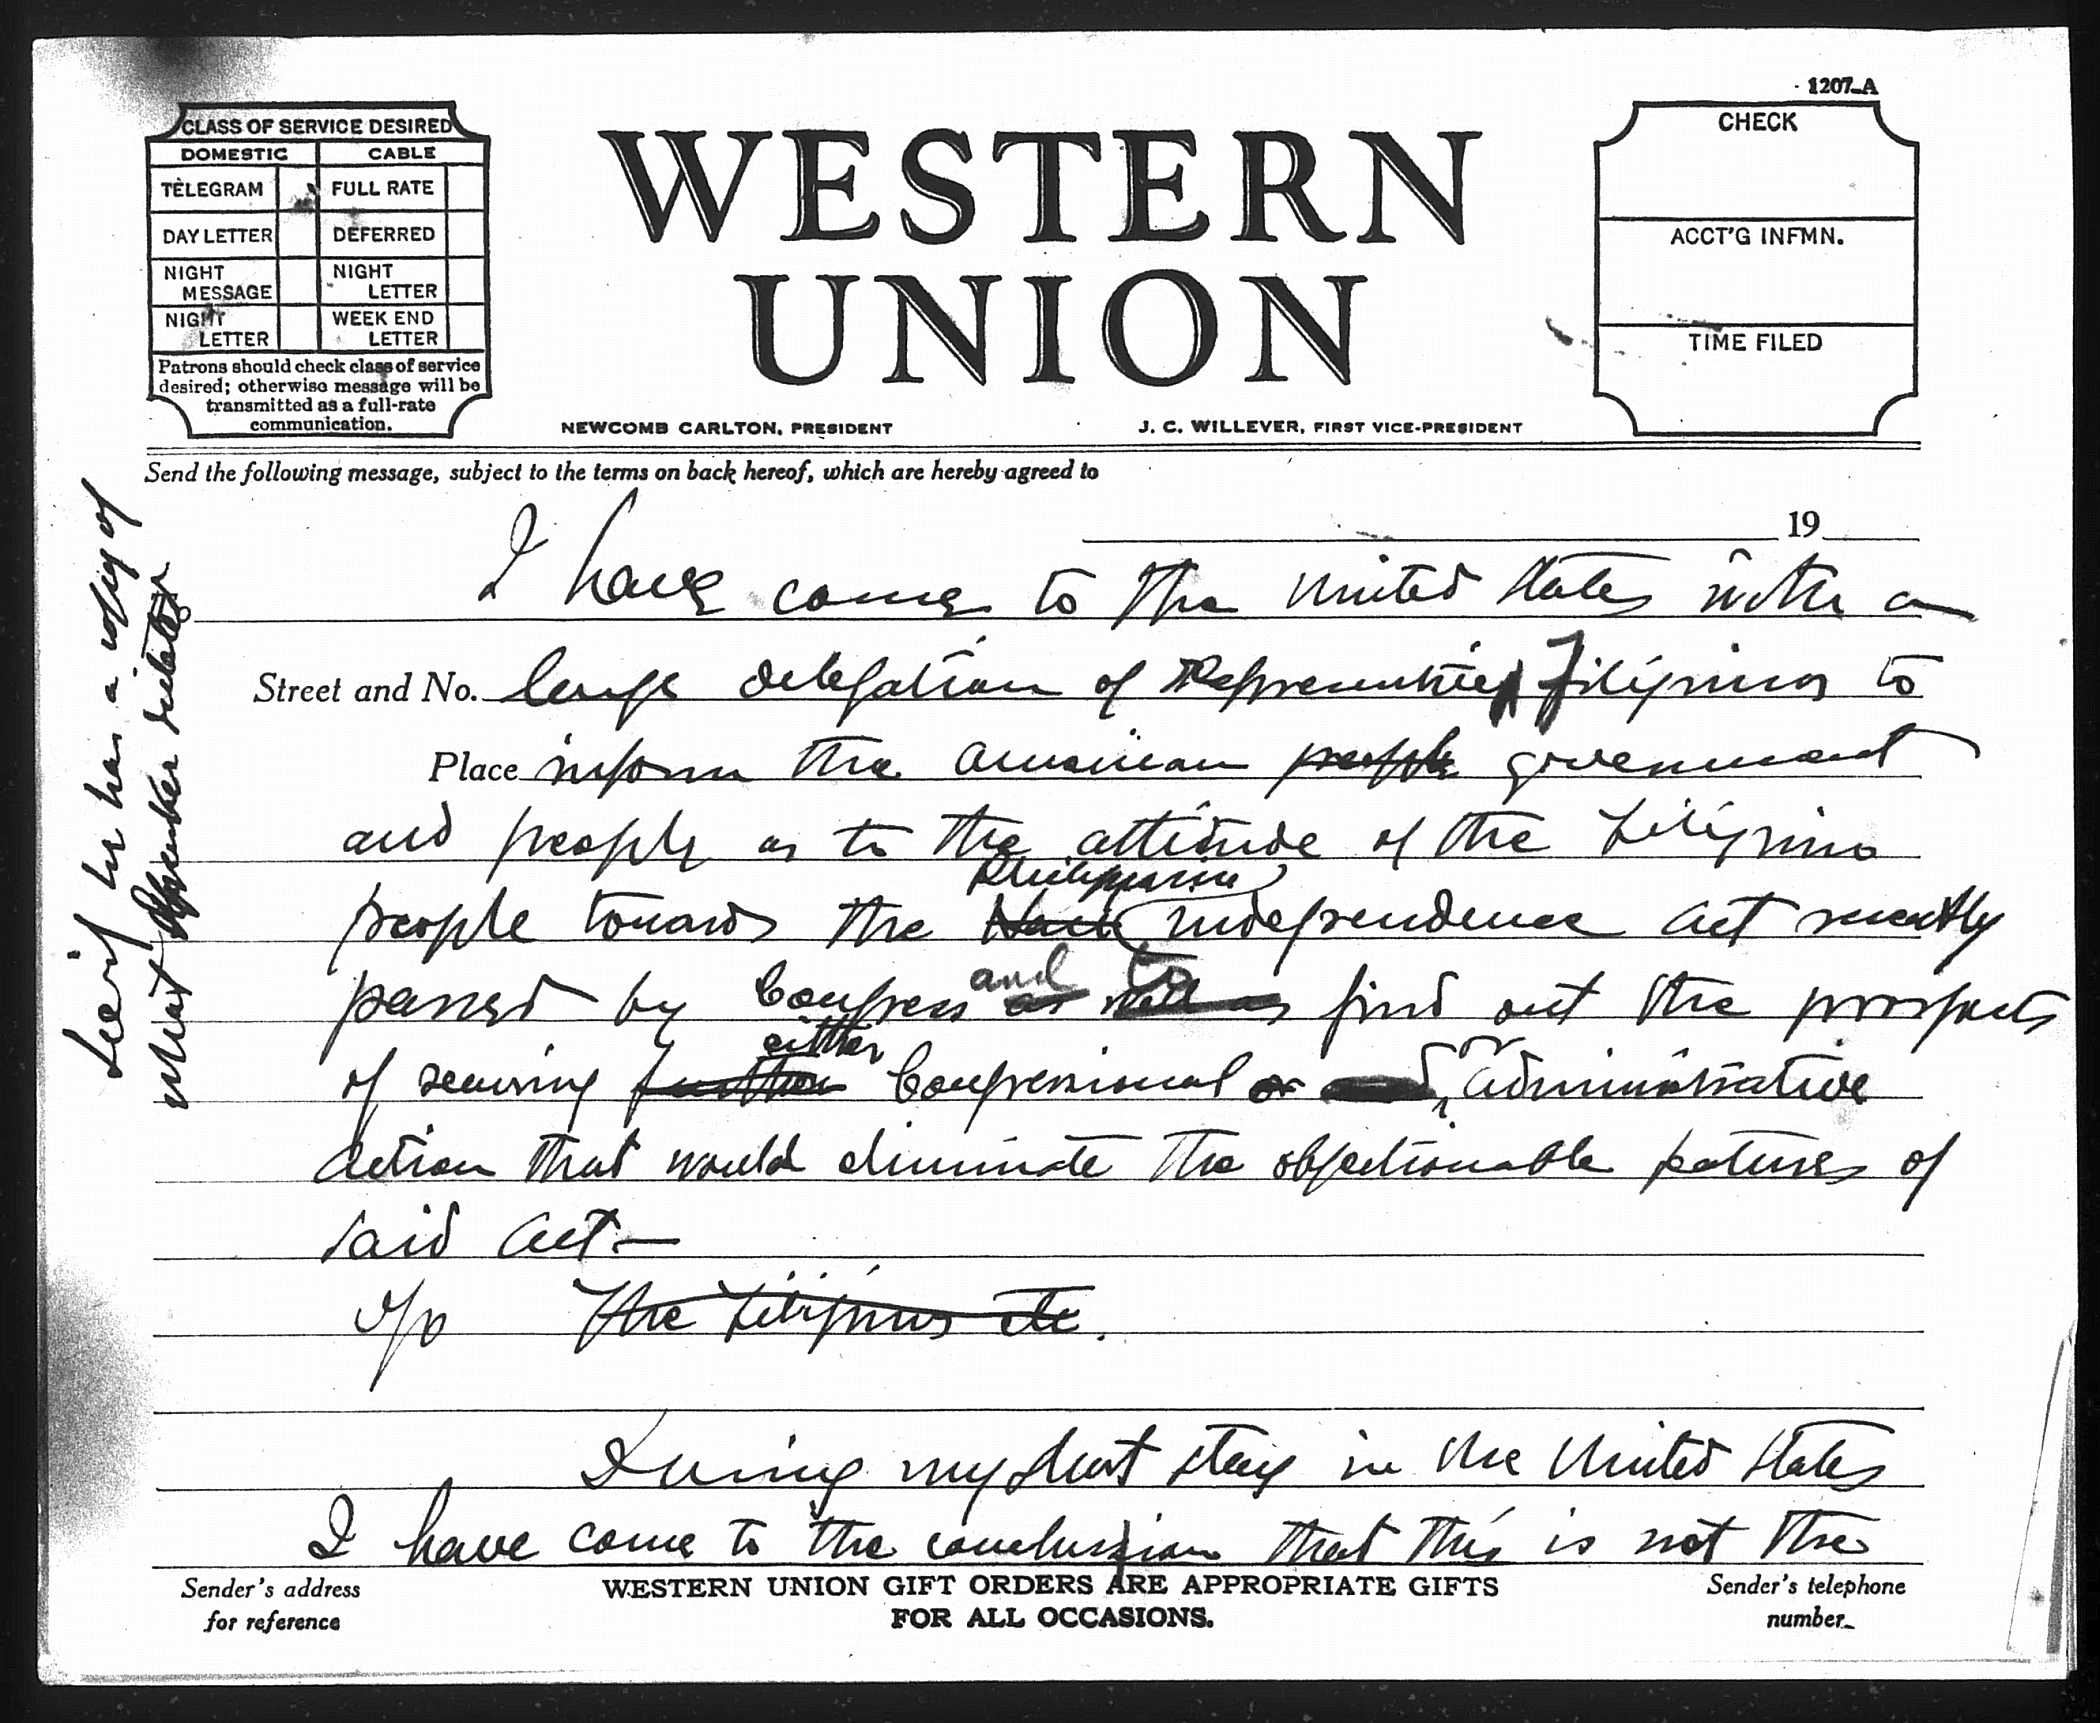 1207-A
CLASS OF SERVICE DESIRED
DOMESTIC CABLE
TELEGRAM FULL RATE
DAY LETTER DEFERRED
NIGHT MESSAGE NIGHT LETTER
NIGHT LETTER WEEK END LETTER
Patrons should check class of service
desired; otherwise message will be
transmitted as a full-rate
communication.
WESTERN
UNION
NEWCOMB CARLTON, PRESIDENT J. C. WILLEVER, FIRST VICE-PRESIDENT
CHECK
ACCT'G INFMN.
TIME FILED
Send the following message, subject to the terms on back hereof, which are hereby agreed to
19
I have come to the United States with a
Street and No. large delegation of Representative Filipinos to
Place inform the American people government
and people as to the attitude of the Filipino
Philippine
people towards the Hare Independence Act recently
and to
passed by Congress as well as find out the prospects
either or
of securing further Congressional or administrative
action that would eliminate the objectionable features of
said Act—
o/o The Filipinos etc.
During my short stay in the United States
I have come to the conclusion that this is not the
See if he has a copy of
what Speaker dictated
Sender's address
for reference
WESTERN UNION GIFT ORDERS ARE APPROPRIATE GIFTS
FOR ALL OCCASIONS.
Sender's telephone
number